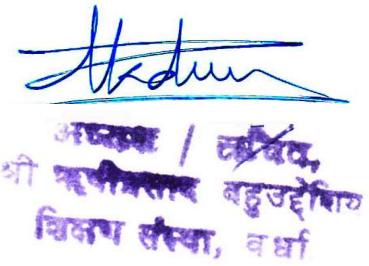 अध्यक्ष / सचिव,
श्री ऋषीप्रसाद बहुउद्देशिय
शिक्षण संस्था, वर्धा